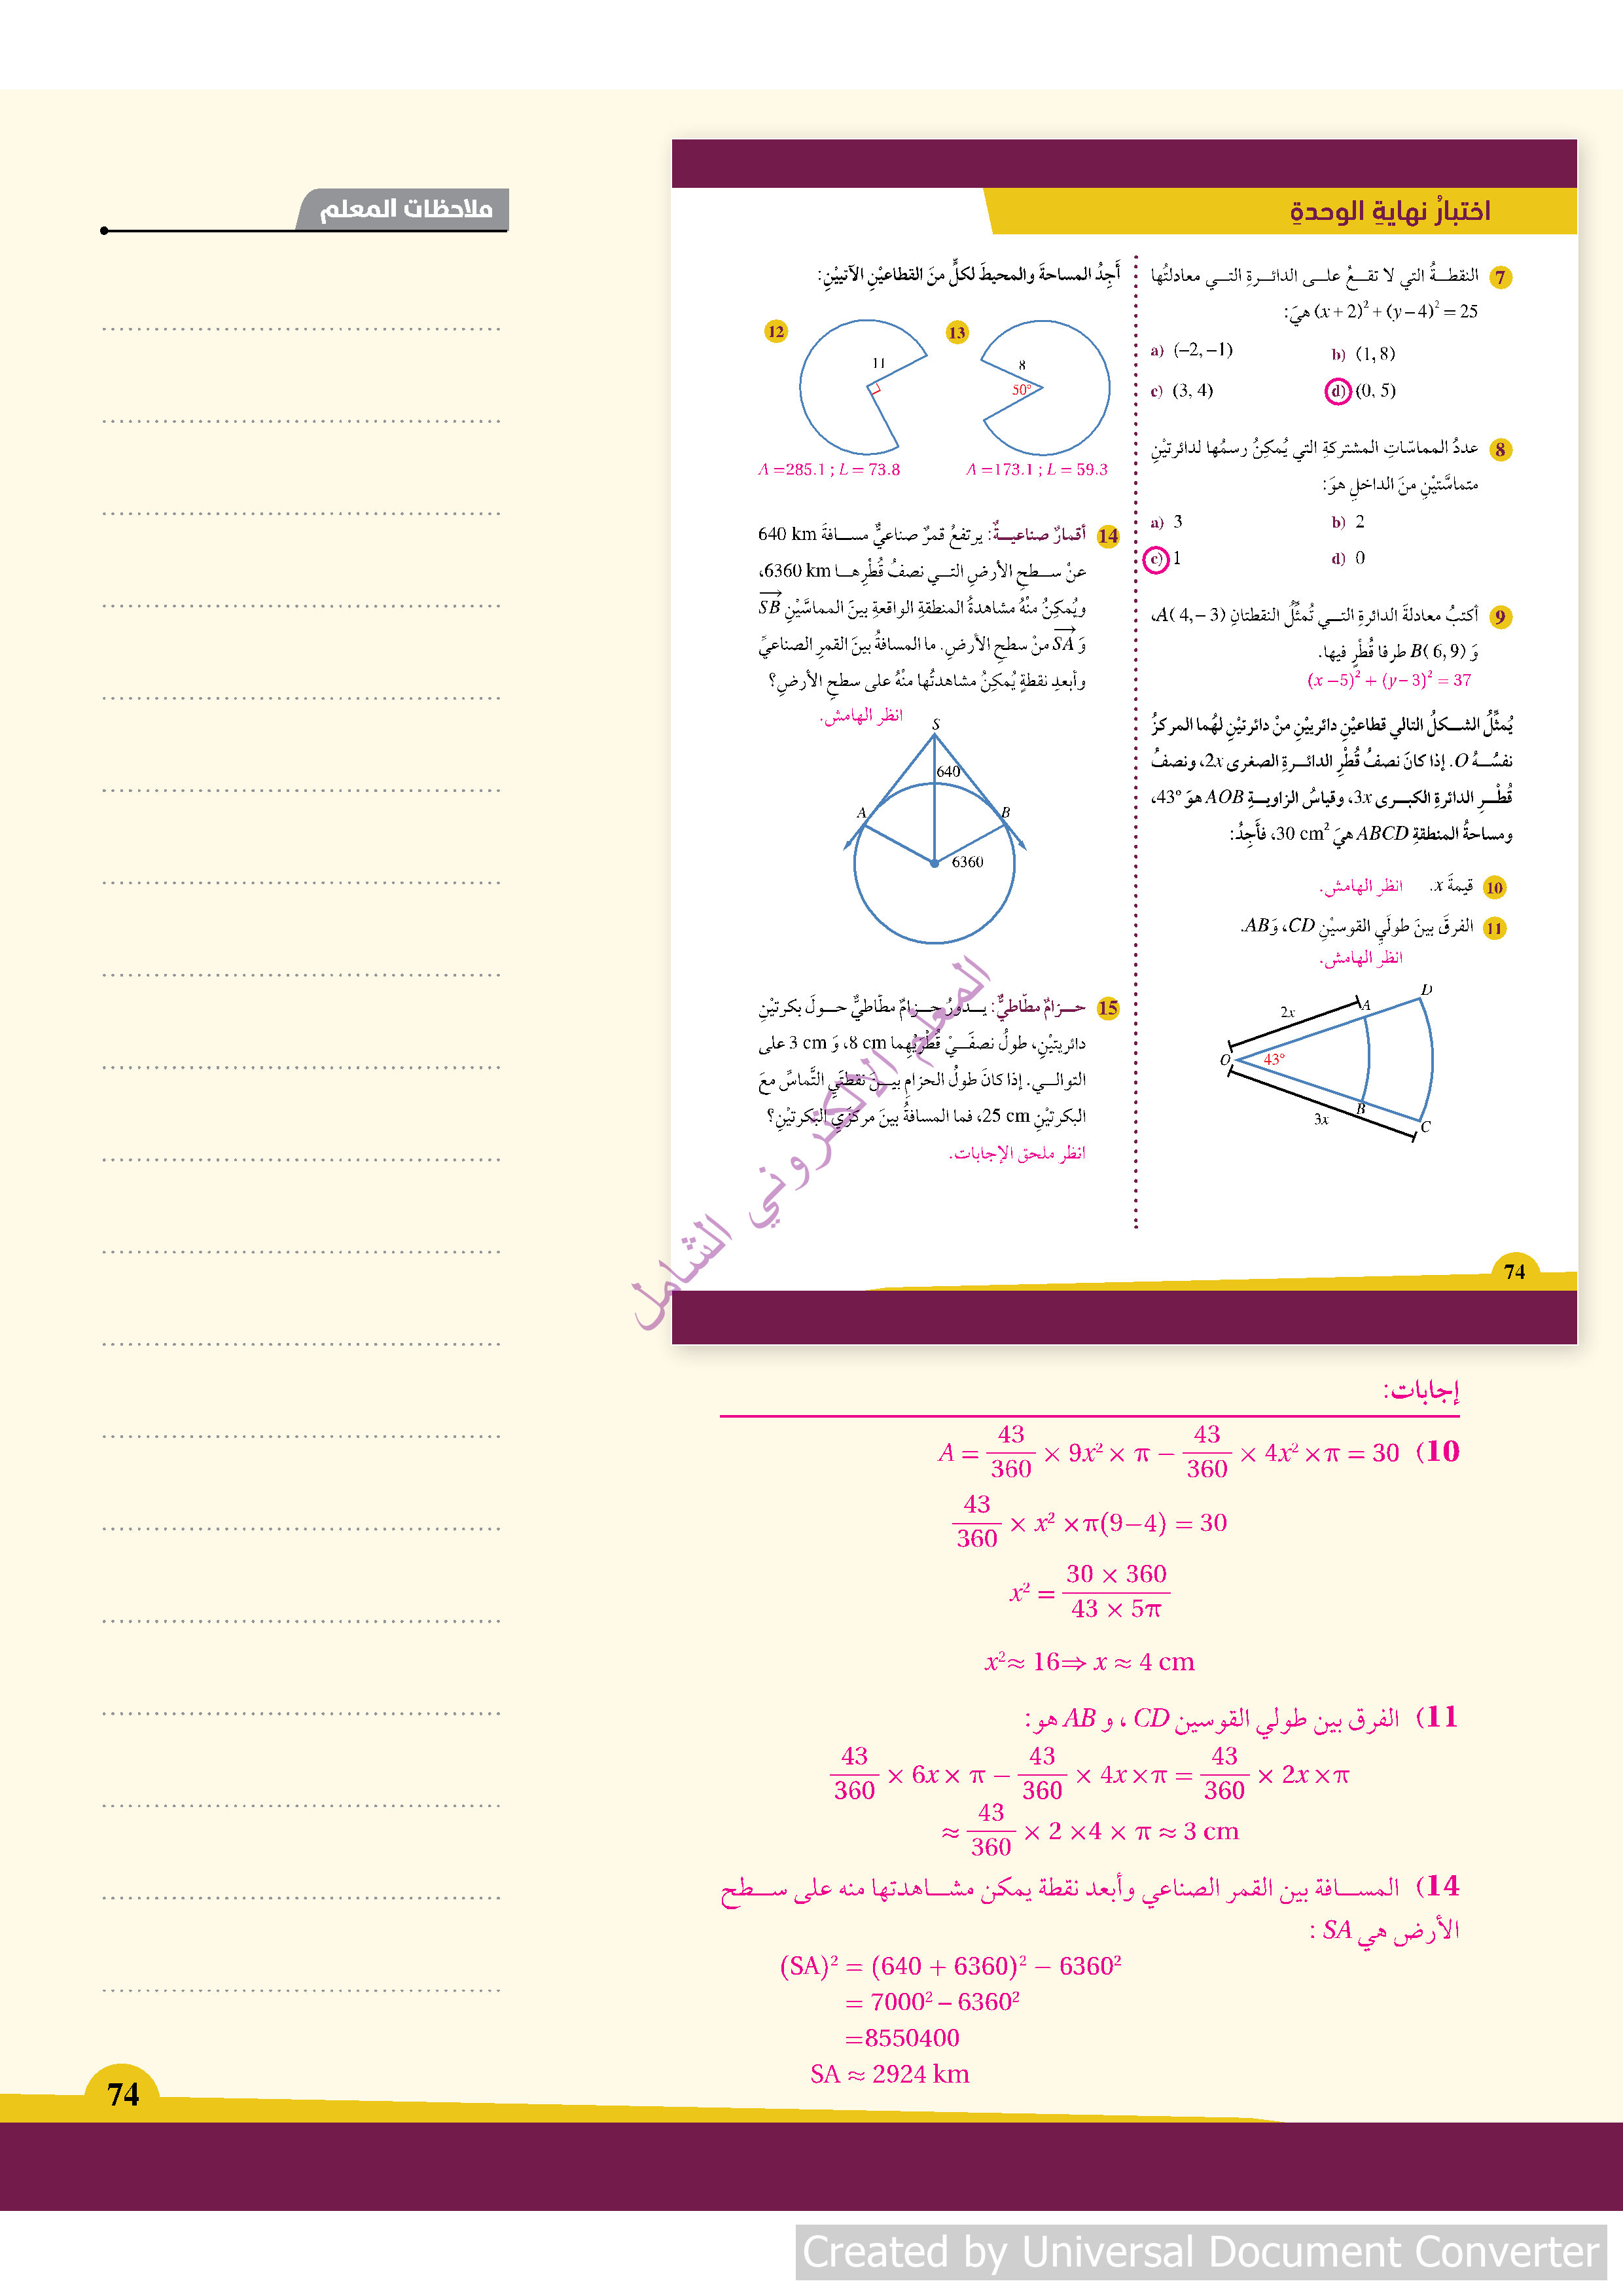 ملاحظات المعلم
اختبارُ نهايةِ الوحدةِ
7 النقطــةُ التي لا تقــعُ علــى الدائــرةِ التــي معادلتُها
(x + 2)² + (y – 4)² = 25 هيَ:
a) (–2, –1) b) (1, 8)
c) (3, 4) d) (0, 5)
8 عددُ المماسّاتِ المشتركةِ التي يُمكِنُ رسمُها لدائرتيْنِ
متماسَّتيْنِ منَ الداخلِ هوَ:
a) 3 b) 2
c) 1 d) 0
9 أكتبُ معادلةَ الدائرةِ التــي تُمثِّلُ النقطتانِ A( 4, – 3)،
وَ B( 6, 9) طرفا قُطْرٍ فيها.
(x –5)² + (y– 3)² = 37
يُمثِّلُ الشــكلُ التالي قطاعيْنِ دائرييْنِ منْ دائرتيْنِ لهُما المركزُ
نفسُــهُ O. إذا كانَ نصفُ قُطْرِ الدائــرةِ الصغرى 2x، ونصفُ
قُطْــرِ الدائرةِ الكبــرى 3x، وقياسُ الزاويــةِ AOB هوَ 43°،
ومساحةُ المنطقةِ ABCD هيَ 30 cm²، فأَجِدُ:
10 قيمةَ x. انظر الهامش.
11 الفرقَ بينَ طولَيِ القوسيْنِ CD، وَAB.
انظر الهامش.
D
A
2x
O 43°
B
3x
C
أَجِدُ المساحةَ والمحيطَ لكلٍّ منَ القطاعيْنِ الآتييْنِ:
12 13
11 8
50°
A =285.1 ; L = 73.8 A =173.1 ; L = 59.3
14 أقمارٌ صناعيــةٌ: يرتفعُ قمرٌ صناعيٌّ مســافةَ 640 km
عنْ ســطحِ الأرضِ التــي نصفُ قُطْرِهــا 6360 km،
ويُمكِنُ منْهُ مشاهدةُ المنطقةِ الواقعةِ بينَ المماسَّيْنِ SB
وَ SA منْ سطحِ الأرضِ. ما المسافةُ بينَ القمرِ الصناعيِّ
وأبعدِ نقطةٍ يُمكِنُ مشاهدتُها منْهُ على سطحِ الأرضِ؟
انظر الهامش.
S
640
A B
6360
15 حــزامٌ مطّاطيٌّ: يــدورُ حــزامٌ مطّاطيٌّ حــولَ بكرتيْنِ
دائريتيْنِ، طولُ نصفَــيْ قُطْرَيْهِما 8 cm، وَ 3 cm على
التوالــي. إذا كانَ طولُ الحزامِ بيــنَ نقطتَيِ التَّماسِّ معَ
البكرتيْنِ 25 cm، فما المسافةُ بينَ مركزَيِ البكرتيْنِ؟
انظر ملحق الإجابات.
المعلم الالكتروني الشامل
74
إجابات:
10) A = 43/360 × 9x² × π – 43/360 × 4x² × π = 30
43/360 × x² × π(9–4) = 30
x² = 30 × 360 / 43 × 5π
x² ≈ 16 ⇒ x ≈ 4 cm
11) الفرق بين طولي القوسين CD ، و AB هو:
43/360 × 6x × π – 43/360 × 4x × π = 43/360 × 2x × π
≈ 43/360 × 2 ×4 × π ≈ 3 cm
14) المســافة بين القمر الصناعي وأبعد نقطة يمكن مشــاهدتها منه على ســطح
الأرض هي SA :
(SA)² = (640 + 6360)² – 6360²
= 7000² – 6360²
=8550400
SA ≈ 2924 km
74
Created by Universal Document Converter